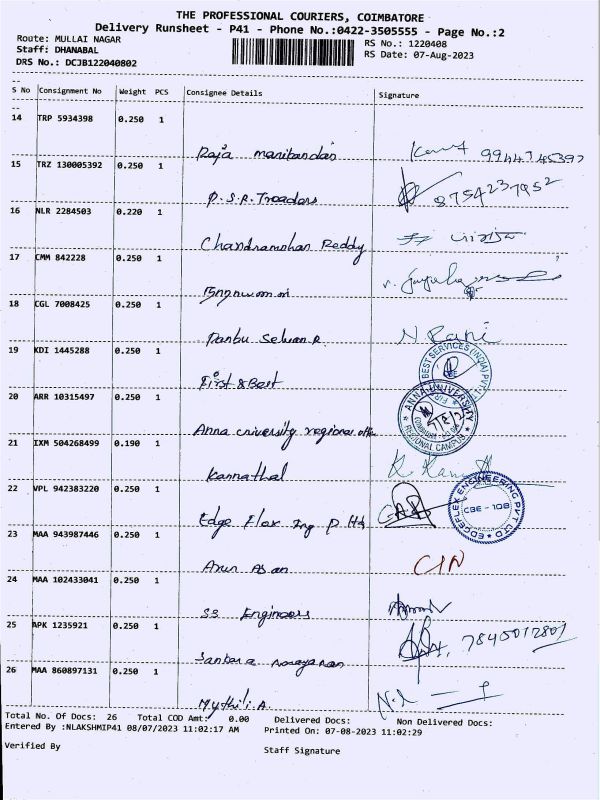 THE PROFESSIONAL COURIERS, COIMBATORE
Delivery Runsheet - P41 - Phone No.:0422-3505555 - Page No.:2
Route: MULLAI NAGAR
RS No.: 1220408
Staff: DHANABAL
RS Date: 07-Aug-2023
DRS No.: DCJB122040802
S No Consignment No Weight PCS Consignee Details Signature
14 TRP 5934398 0.250 1
Raja manibandan 9944745397
15 TRZ 130005392 0.250 1
P.S.R. Treaders 8754237952
16 NLR 2284503 0.220 1
Chandramohan Reddy
17 CMM 842228 0.250 1
18 CGL 7008425 0.250 1
Panbu Selvan.R N Rani
BEST SERVICES (INDIA) PVT. L
19 KDI 1445288 0.250 1
First & Best
ANNA UNIVERSITY
20 ARR 10315497 0.250 1
REGIONAL CAMPUS
Anna university regional office
21 IXM 504268499 0.190 1
Kannathal
22 VPL 942383220 0.250 1
EDGEFLEX ENGINEERING PVT LTD
CBE - 108
Edge Flex Eng P ltd
23 MAA 943987446 0.250 1
Arun
24 MAA 102433041 0.250 1
S3 Engineers
25 APK 1235921 0.250 1
7845012801
Sankara narayanan
26 MAA 860897131 0.250 1
Mythili.A.
Total No. Of Docs: 26 Total COD Amt: 0.00 Delivered Docs: Non Delivered Docs:
Entered By :NLAKSHMIP41 08/07/2023 11:02:17 AM Printed On: 07-08-2023 11:02:29
Verified By Staff Signature